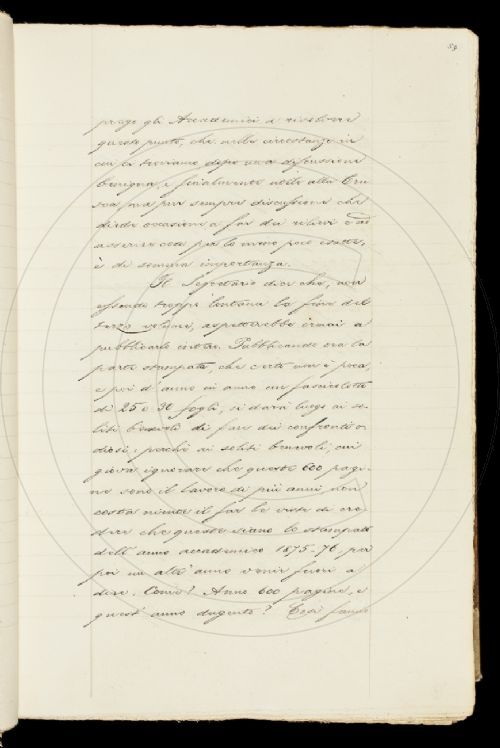 prego gli Accademici a risolvere
questo punto, che nelle circostanze in
cui ci troviamo dopo una discussione
benigna, e finalmente utile alla Cru-
sca, ma pur sempre discussione che
diede occasione a far dei rilievi e ad
asserire cose per lo meno poco esatte,
è di somma importanza.
Il Segretario dice che, non
essendo troppo lontana la fine del
terzo volume, aspetterebbe ormai a
pubblicarlo intero. Pubblicando ora la
parte stampata, che certo non è poca,
e poi d'anno in anno un fascicoletto
di 25 o 30 fogli, si darà luogo ai so-
liti benevoli di fare dei confronti o-
diosi; perchè ai soliti benevoli, cui
giova ignorare che queste 600 pagi-
ne sono il lavoro di più anni, non
costa niente il far le viste di cre-
dere che queste siano le stampate
dell'anno accademico 1875-76, per
poi un altr'anno venir fuori a
dire. Come? Anno 600 pagine, e
quest'anno dugento? Così fanno